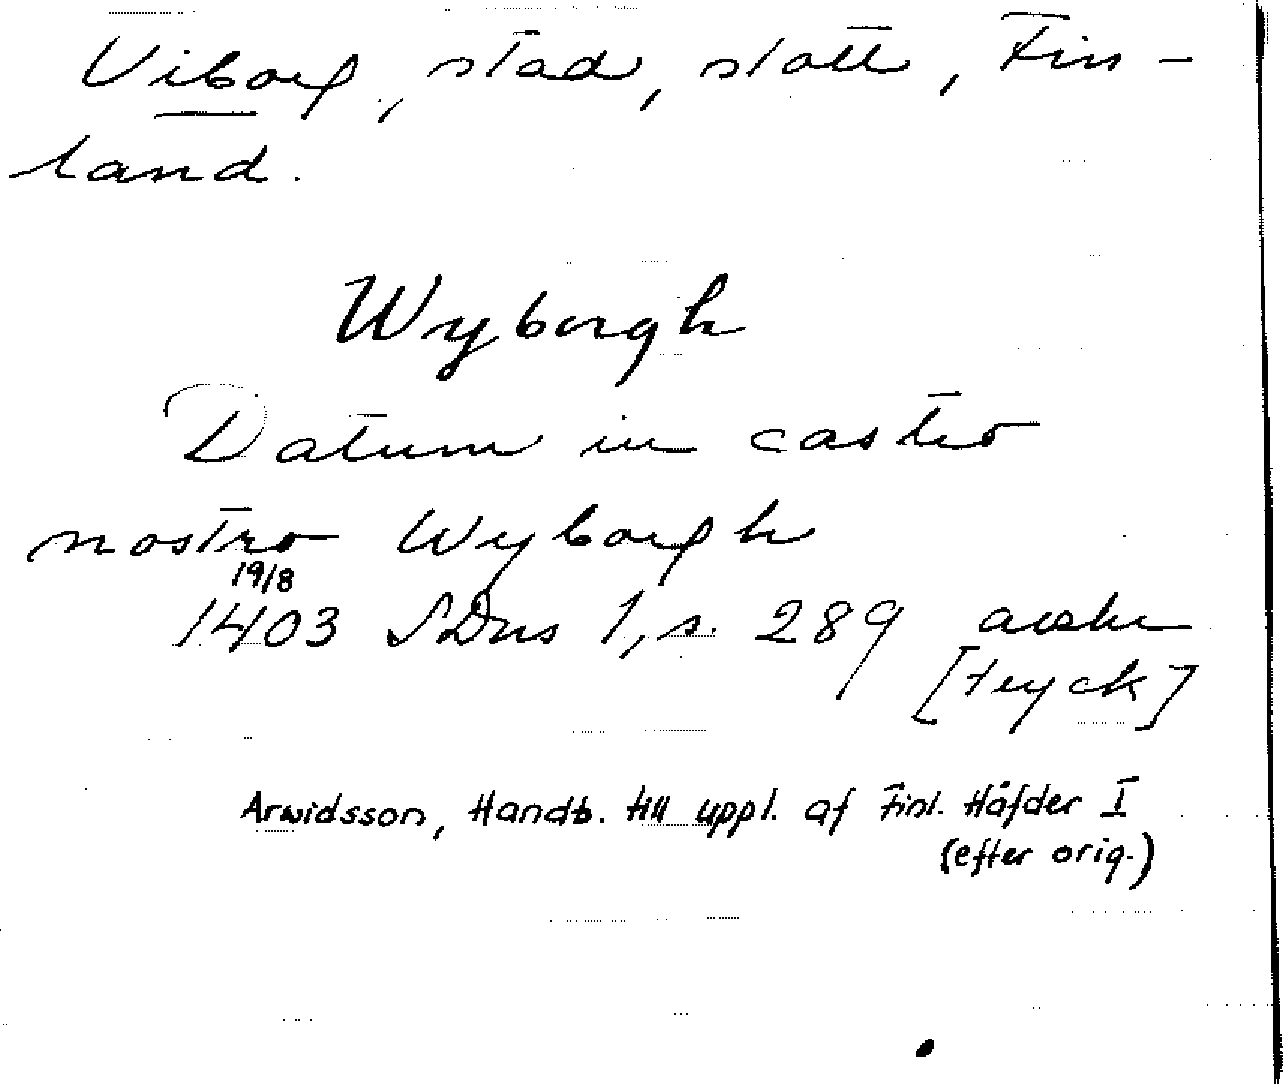 Viborg, stad, slott, Fin-
land.
Wyborgh
Datum in castro
nostro Wyborgh
19/8
1403 SDns 1, s. 289 avskr
[tryck]
Arwidsson, Handb. till uppl. af Finl. Häfder I
(efter orig.)